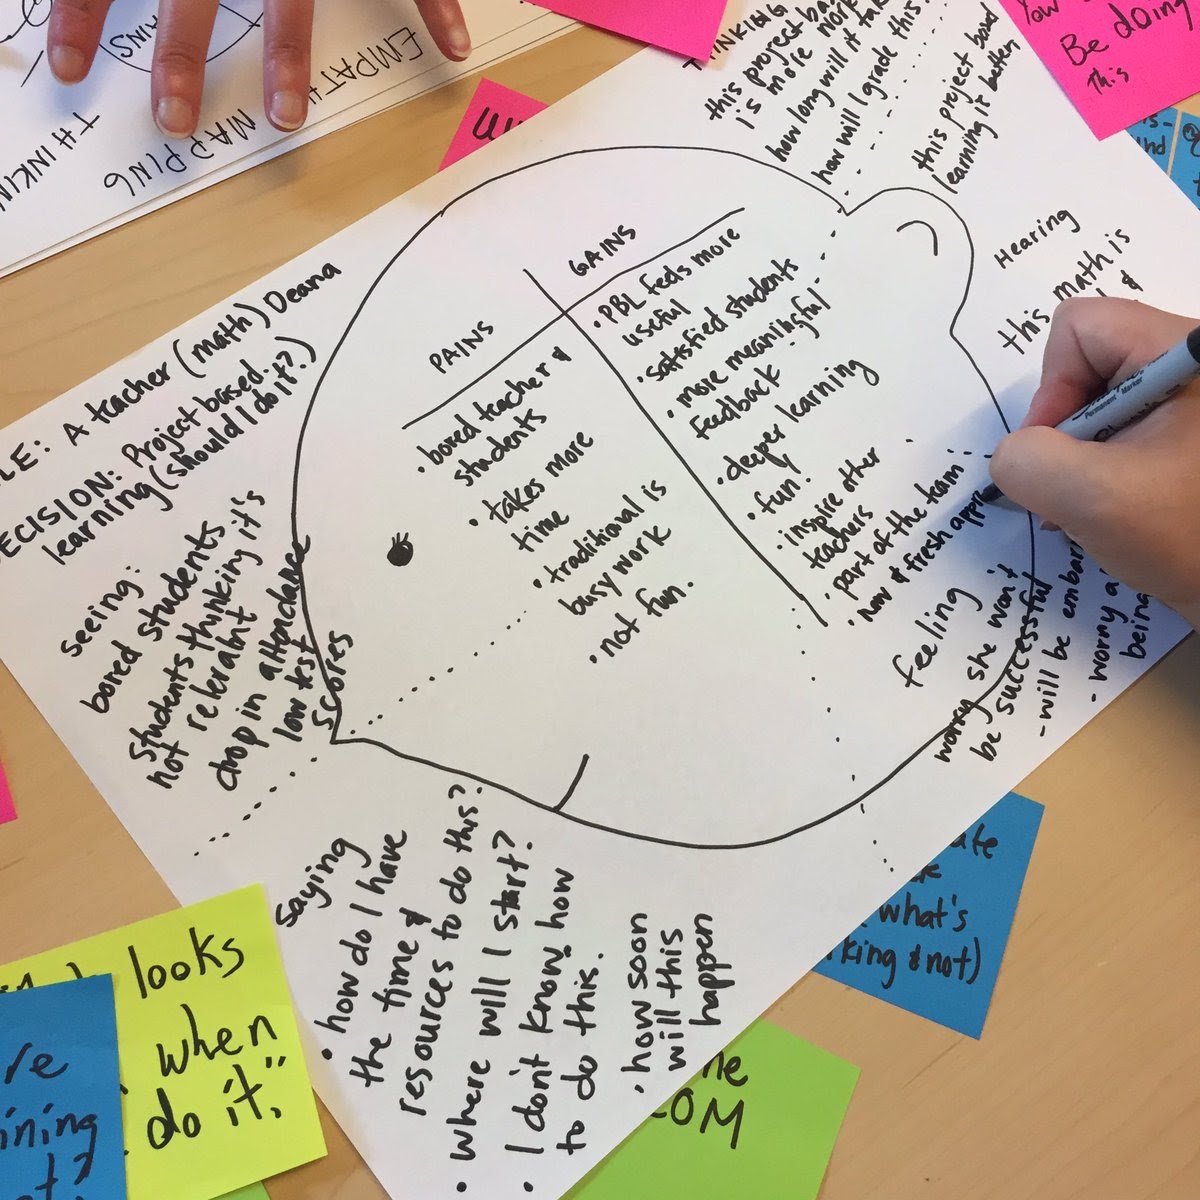 EMPATH
MAPPING
THINKIN
A teacher (math) Deana
DECISION: Project based
learning (should I do it?)
seeing:
bored students
students thinking it's
not relevaht
drop in attendance
low test
scores
PAINS
• bored teacher &
students
• takes more
time
• traditional is
busy work
• not fun.
GAINS
• PBL feels more
useful
• satisfied students
• more meaningful
feedback
• deeper learning
• fun!
• inspire other
teachers
• part of the team
• new & fresh
THINKING
this project
is more work
how long will it
how will I grade this
this project based
learning is better
Hearing
this math is
&
feeling
worry she won't
be successful
- will be
- worry
being
saying
• how do I have
the time &
resources to do this?
• where will I start?
• I don't know how
to do this.
• how soon
will this
happen
You
Be doing
This
looks
when
do it."
what's
& not)
OM